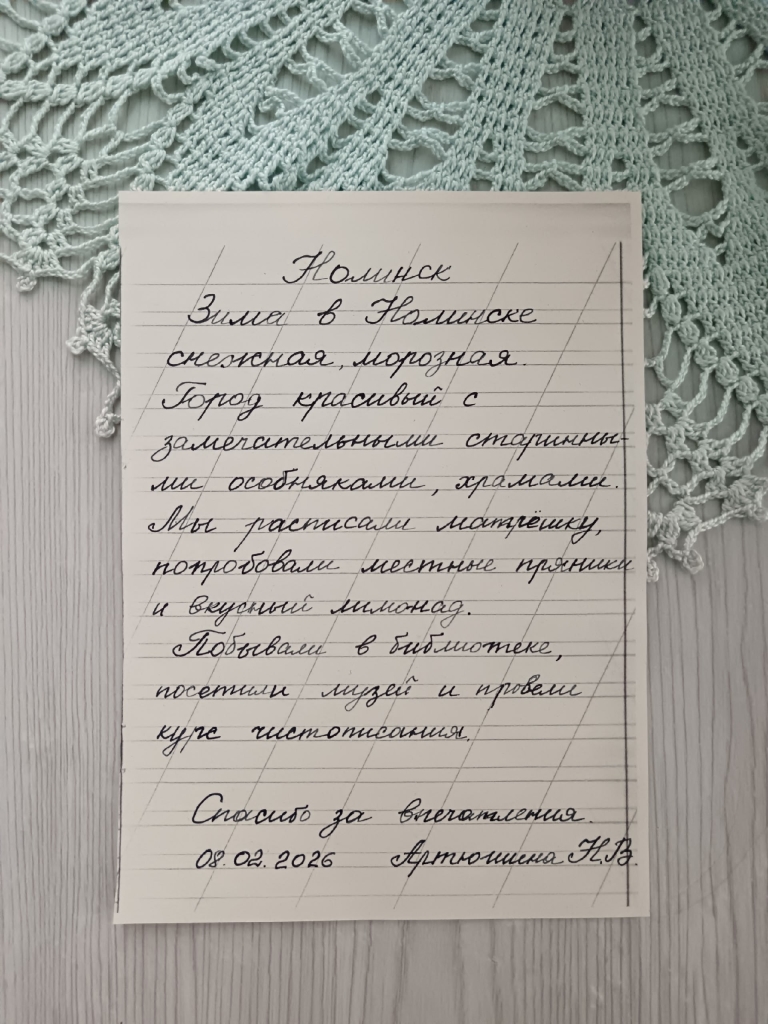 Нолинск
Зима в Нолинске
снежная, морозная.
Город красивый с
замечательными старинны-
ми особняками, храмами.
Мы расписали матрёшку,
попробовали местные пряники
и вкусный лимонад.
Побывали в библиотеке,
посетили музей и провели
курс чистописания.
Спасибо за впечатления.
08.02.2026 Артюшина Н.В.